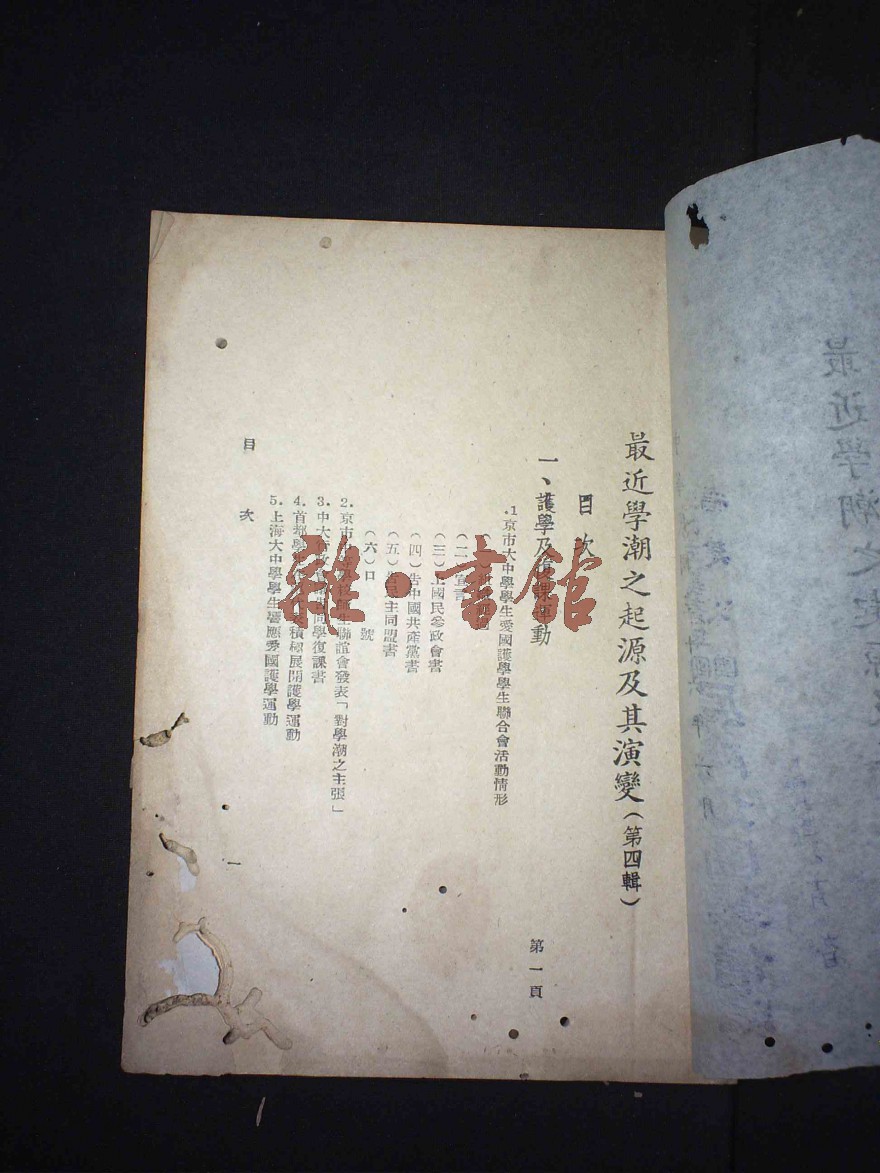 最近學潮之起源及其演變（第四輯）
目次
一、護學及復課運動 第一頁
1.京市大中學學生愛國護學學生聯合會活動情形
（二）宣言
（三）上國民參政會書
（四）告中國共產黨書
（五）告民主同盟書
（六）口號
2.京市 生聯誼會發表「對學潮之主張」
3.中大 同學復課書
4.首都學 積極展開護學運動
5.上海大中學學生響應愛國護學運動
目次 一
雜·書館
最近學潮之起源